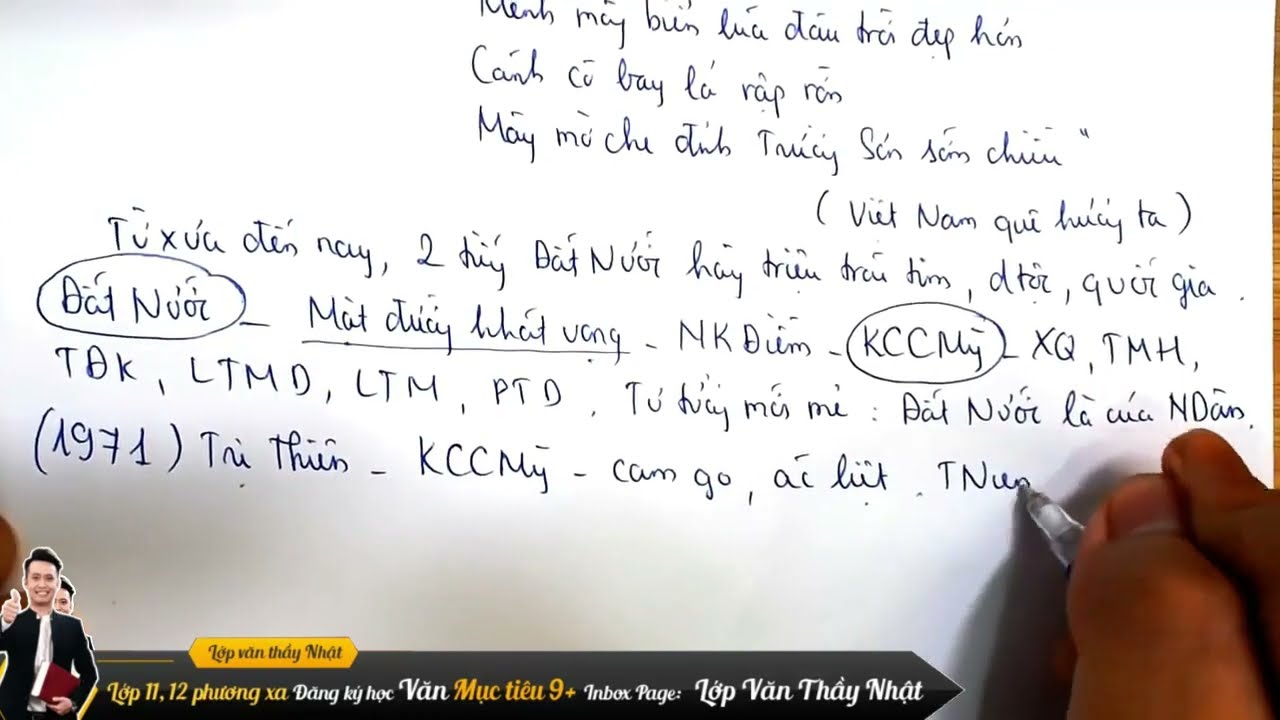 Mênh mông biển lúa đâu trời đẹp hơn
Cánh cò bay lả rập rờn
Mây mờ che đỉnh Trường Sơn sớm chiều "
( Việt Nam quê hương ta )
Từ xưa đến nay, 2 tiếng Đất Nước hằng triệu trái tim, dtộc, quốc gia .
Đất Nước - Mặt đường khát vọng - NK Điềm - KCCMỹ - XQ, TMH,
TĐK, LTMD, LTM, PTD. Tư tưởng mới mẻ : Đất Nước là của NDân.
(1971) Trị Thiên - KCCMỹ - cam go, ác liệt . TNiên
Lớp văn thầy Nhật
Lớp 11, 12 phương xa Đăng ký học Văn Mục tiêu 9+ Inbox Page: Lớp Văn Thầy Nhật